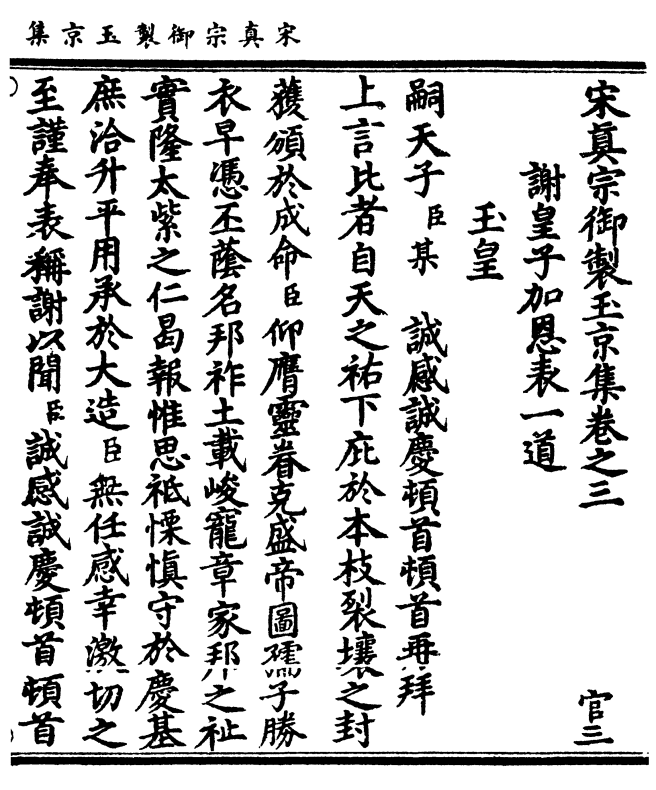 宋真宗御製玉京集
宋真宗御製玉京集卷之三 官三
謝皇子加恩表一道
玉皇
嗣天子臣某 誠感誠慶頓首頓首再拜
上言比者自天之祐下庇於本枝裂壤之封
獲頒於成命臣仰膺靈眷克盛帝圖孺子勝
衣早憑丕蔭名邦祚土載峻寵章家邦之祉
實隆太紫之仁曷報惟思祗慄慎守於慶基
庶洽升平用承於大造臣無任感幸激切之
至謹奉表稱謝以聞臣誠感誠慶頓首頓首